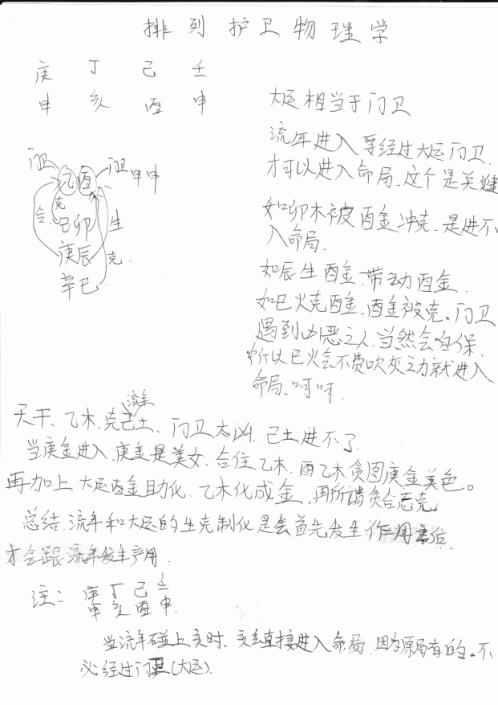 排列护卫物理学
庚 丁 己 壬
申 亥 酉 申
大运相当于门卫
流年进入要经过大运门卫
才可以进入命局、这个是关键
如卯木被酉金冲克、是进不
入命局.
如辰生酉金、带动酉金
如巳火克酉金、酉金被克。门卫
遇到凶恶之人、当然会自保.
所以巳火会不费吹灰之力就进入
命局、呵呵.
门卫 乙酉 门卫 甲申
克
合 己卯 生
庚辰 克
辛巳
流年
天干、乙木、克己土、门卫太凶、己土进不了.
当庚金进入、庚金是美女、合住乙木、而乙木贪图庚金美色。
再加上大运酉金助化、乙木化成金、用所谓贪合忘克
总结、流年和大运的生克制化是会首先发生作用后
才会跟流年发生产用.
注: 庚 丁 己 壬
申 亥 酉 申
当流年碰上亥时、亥会直接进入命局、因为原局有的。不
必经过门卫(大运).